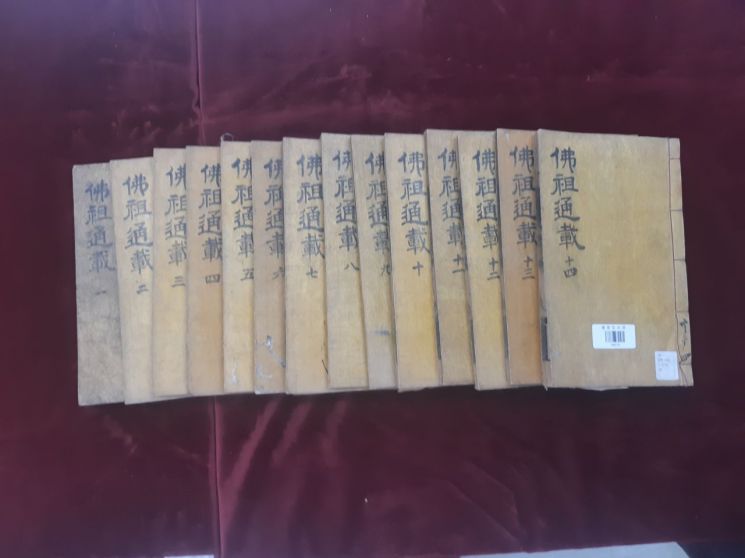 佛祖通載 一
佛祖通載 二
佛祖通載 三
佛祖通載 四
佛祖通載 五
佛祖通載 六
佛祖通載 七
佛祖通載 八
佛祖通載 九
佛祖通載 十
佛祖通載 十一
佛祖通載 十二
佛祖通載 十三
佛祖通載 十四